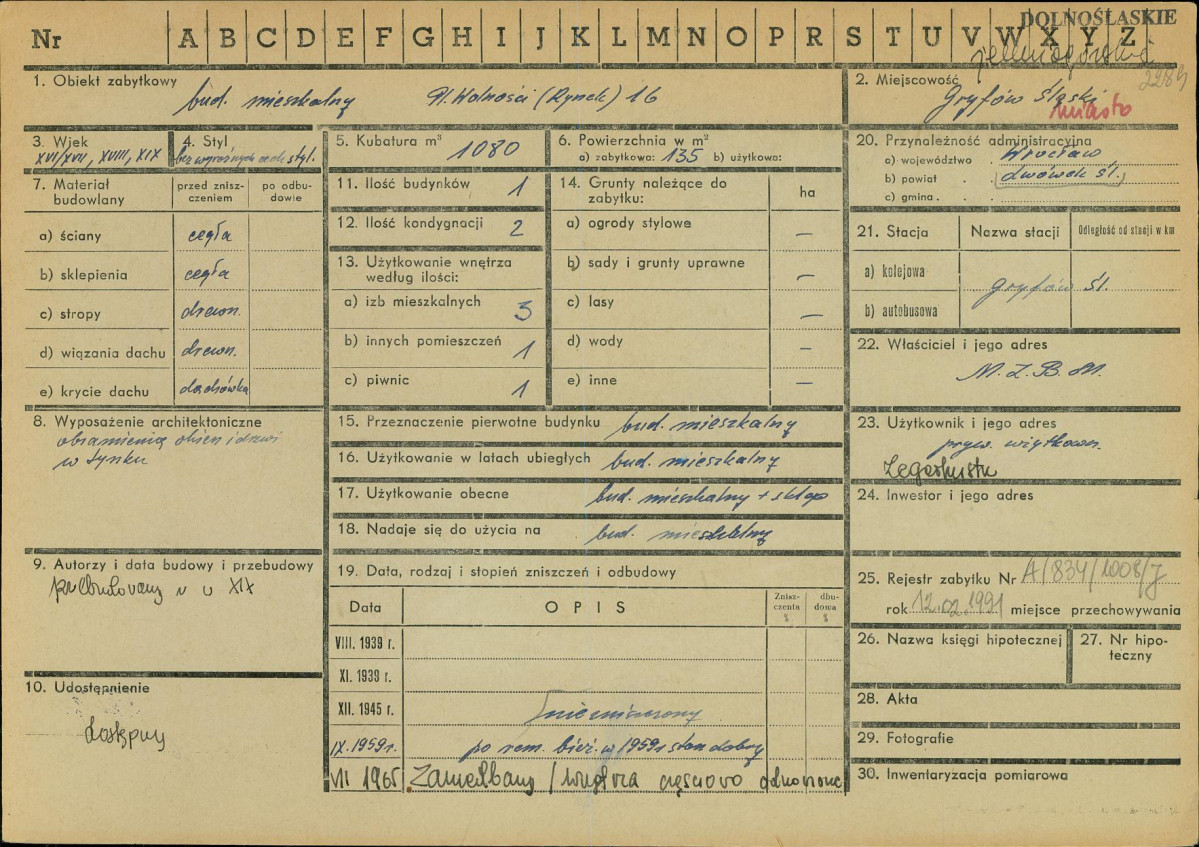 DOLNOŚLĄSKIE
Nr A B C D E F G H I J K L M N O P R S T U V W X Y Z
jeleniogórskie
2284
1. Obiekt zabytkowy
bud. mieszkalny Pl. Wolności (Rynek) 16
2. Miejscowość
Gryfów Śląski
miasto
3. Wiek
XVI/XVII, XVIII, XIX
4. Styl
bez wyraźnych cech styl.
5. Kubatura m³ 1080
6. Powierzchnia w m²
a) zabytkowa: 135 b) użytkowa:
20. Przynależność administracyjna
a) województwo Wrocław
b) powiat lwówek śl.
c) gmina
7. Materiał budowlany
przed zniszczeniem
po odbudowie
a) ściany cegła
b) sklepienia cegła
c) stropy drewn.
d) wiązania dachu drewn.
e) krycie dachu dachówka
11. Ilość budynków 1
12. Ilość kondygnacji 2
13. Użytkowanie wnętrza
według ilości:
a) izb mieszkalnych 3
b) innych pomieszczeń 1
c) piwnic 1
14. Grunty należące do
zabytku:
ha
a) ogrody stylowe –
b) sady i grunty uprawne –
c) lasy –
d) wody –
e) inne –
21. Stacja Nazwa stacji Odległość od stacji w km
a) kolejowa
gryfów śl.
b) autobusowa
22. Właściciel i jego adres
M.Z.B.M.
8. Wyposażenie architektoniczne
obramienia okien i drzwi
w tynku
15. Przeznaczenie pierwotne budynku bud. mieszkalny
16. Użytkowanie w latach ubiegłych bud. mieszkalny
17. Użytkowanie obecne bud. mieszkalny + sklep
18. Nadaje się do użycia na bud. mieszkalny
23. Użytkownik i jego adres
pryw. użytkown.
24. Inwestor i jego adres
9. Autorzy i data budowy i przebudowy
przebudowany w XIX
10. Udostępnienie
dostępny
19. Data, rodzaj i stopień zniszczeń i odbudowy
Data OPIS Zniszczenia % dbudowa %
VIII. 1939 r.
XI. 1939 r.
XII. 1945 r. niezniszczony
IX. 1959 r. po rem. bież. w 1959 r stan dobry
VII 1965 Zaniedbany / częściowo odnowione
25. Rejestr zabytku Nr A/834/1008/J
rok 12.02.1991 miejsce przechowywania
26. Nazwa księgi hipotecznej
27. Nr hipoteczny
28. Akta
29. Fotografie
30. Inwentaryzacja pomiarowa